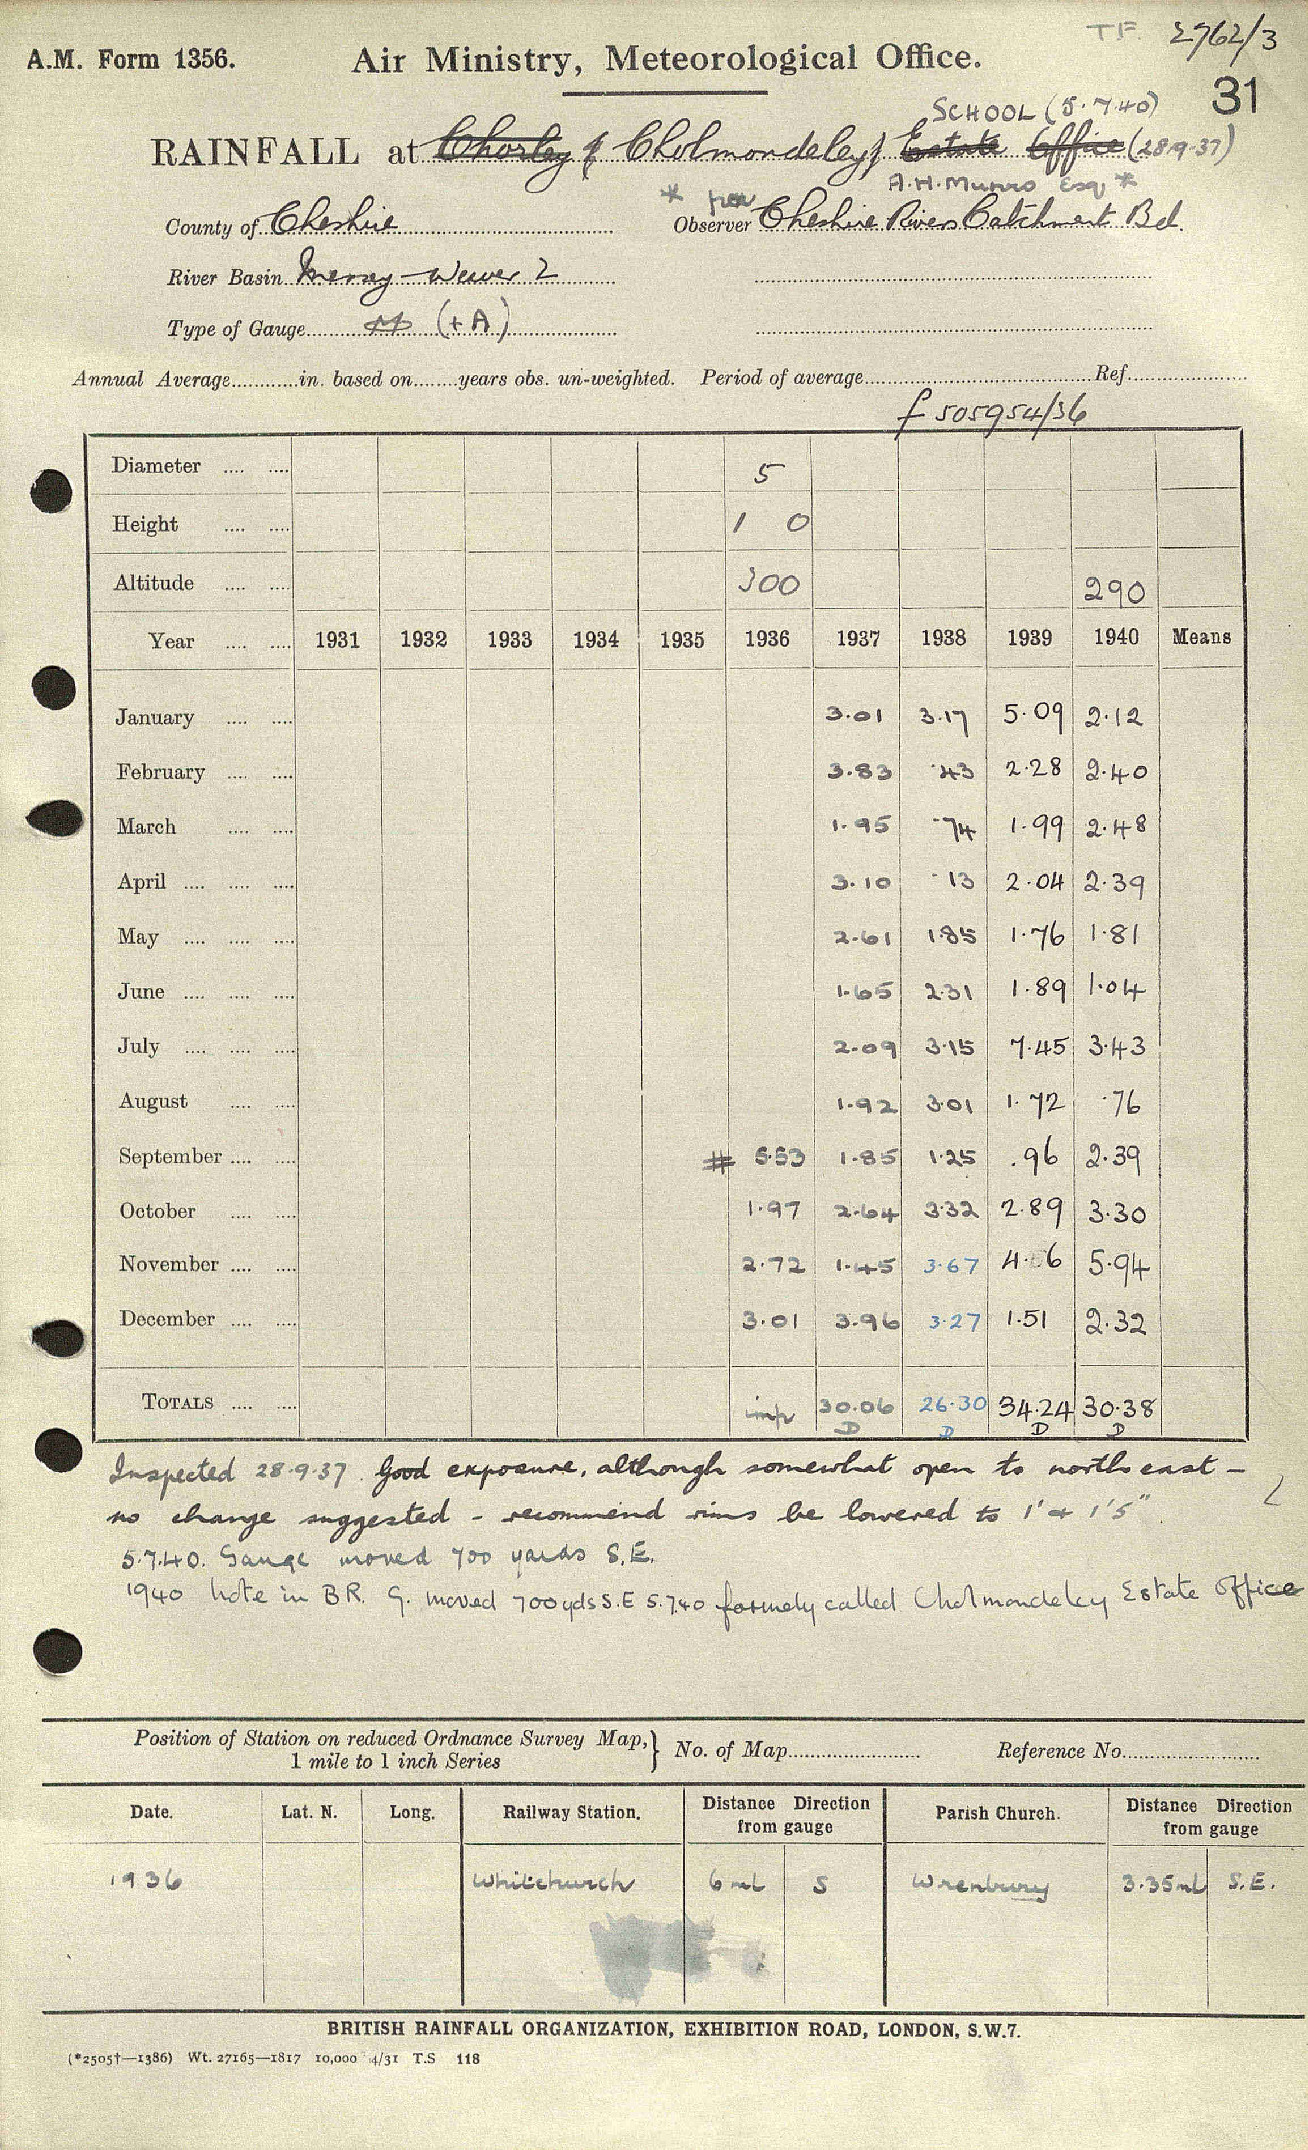 T.F. 2762/3
A.M. Form 1356. Air Ministry, Meteorological Office.
31
SCHOOL (5.7.40)
RAINFALL at Chorley Cholmondeley Estate Office (28.9.37)
* A.H. Munro Esq *
County of Cheshire Observer Cheshire Rivers Catchment Bd.
River Basin Mersey - Weaver 2
Type of Gauge M (+A)
Annual Average in. based on years obs. un-weighted. Period of average Ref.
f 505954/36
Diameter 5
Height 1 0
Altitude 300 290
Year 1931 1932 1933 1934 1935 1936 1937 1938 1939 1940 Means
January 3.01 3.17 5.09 2.12
February 3.83 .43 2.28 2.40
March 1.95 .74 1.99 2.48
April 3.10 .13 2.04 2.39
May 2.61 1.85 1.76 1.81
June 1.65 2.31 1.89 1.04
July 2.09 3.15 7.45 3.43
August 1.92 3.01 1.72 .76
September # 5.53 1.85 1.25 .96 2.39
October 1.97 2.64 3.32 2.89 3.30
November 2.72 1.45 3.67 4.66 5.94
December 3.01 3.96 3.27 1.51 2.32
TOTALS imp 30.06 26.30 34.24 30.38
D D D D
Inspected 28.9.37. Good exposure, although somewhat open to north east -
no change suggested - recommend rims be lowered to 1' & 1'5".
5.7.40. Gauge moved 700 yards S.E.
1940 note in B.R. G. moved 700 yds S.E 5.7.40 formely called Cholmondeley Estate Office
Position of Station on reduced Ordnance Survey Map, 1 mile to 1 inch Series } No. of Map Reference No.
Date. Lat. N. Long. Railway Station. Distance Direction from gauge Parish Church. Distance Direction from gauge
1936 Whitchurch 6 ml S Wrenbury 3.35 ml S.E.
BRITISH RAINFALL ORGANIZATION, EXHIBITION ROAD, LONDON, S.W.7.
(*2505†—1386) Wt. 27165—1817 10,000 4/31 T.S 118